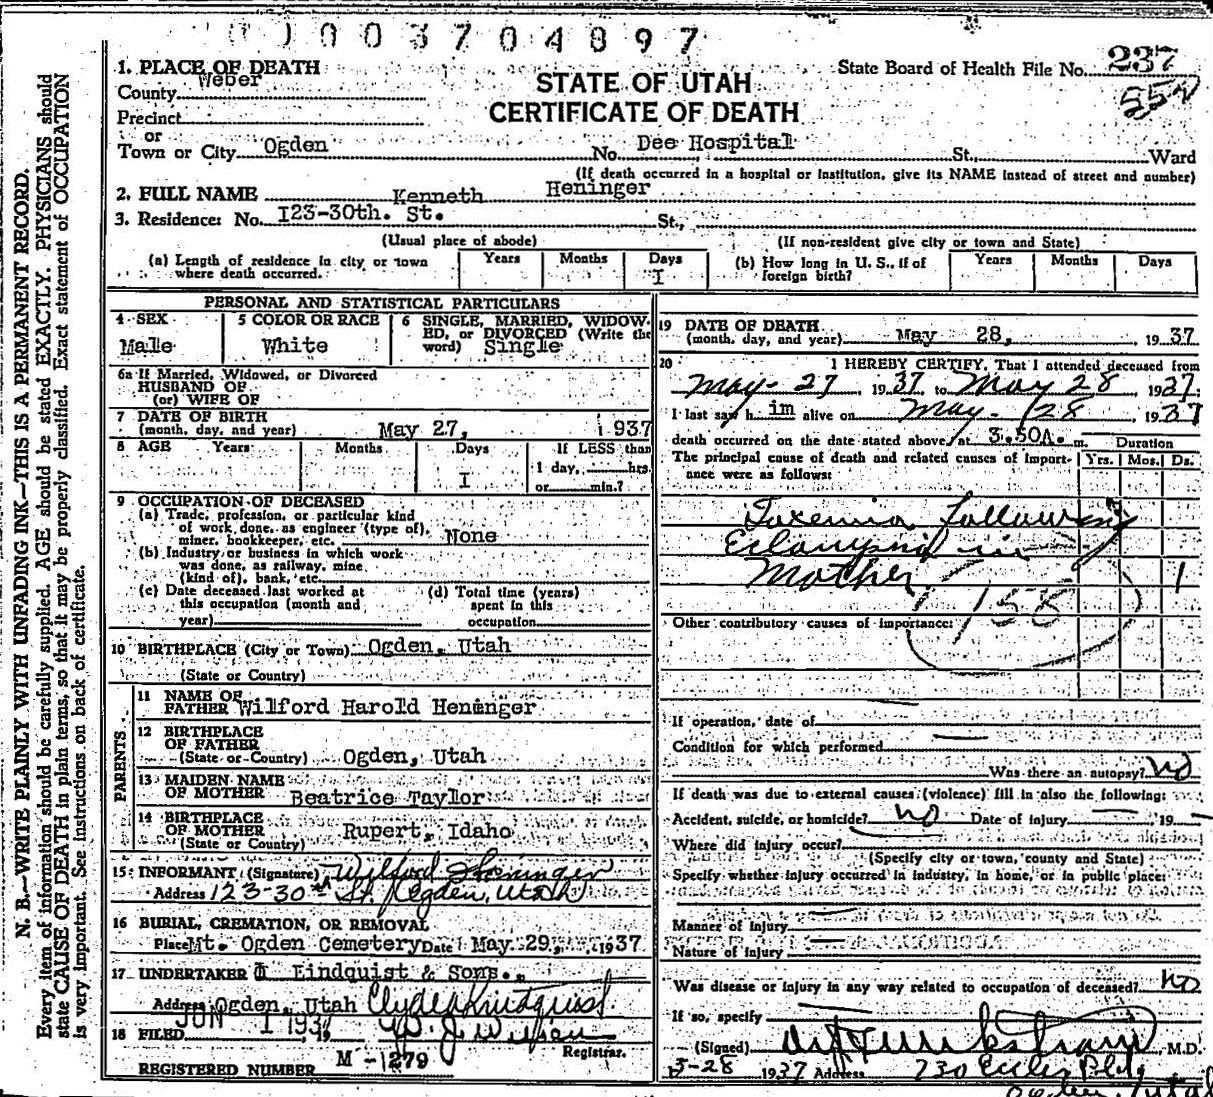 003704897
1. PLACE OF DEATH
County Weber
STATE OF UTAH
CERTIFICATE OF DEATH
State Board of Health File No. 237
Precinct
or
Town or City Ogden No. Dee Hospital St., Ward
(If death occurred in a hospital or institution, give its NAME instead of street and number)
2. FULL NAME Kenneth Heninger
3. Residence: No. I23-30th. St. St.,
(Usual place of abode) (If non-resident give city or town and State)
(a) Length of residence in city or town where death occurred. Years Months Days I
(b) How long in U. S., if of foreign birth? Years Months Days
PERSONAL AND STATISTICAL PARTICULARS
4 SEX Male
5 COLOR OR RACE White
6 SINGLE, MARRIED, WIDOWED, or DIVORCED (Write the word) Single
6a If Married, Widowed, or Divorced
HUSBAND OF
(or) WIFE OF
7 DATE OF BIRTH
(month, day, and year) May 27, 1937
8 AGE Years Months Days I If LESS than
1 day, hrs.
or min.?
9 OCCUPATION OF DECEASED
(a) Trade, profession, or particular kind
of work done, as engineer (type of),
miner, bookkeeper, etc. None
(b) Industry or business in which work
was done, as railway, mine
(kind of), bank, etc.
(c) Date deceased last worked at
this occupation (month and
year)
(d) Total time (years)
spent in this
occupation
10 BIRTHPLACE (City or Town) Ogden, Utah
(State or Country)
PARENTS
11 NAME OF
FATHER Wilford Harold Heninger
12 BIRTHPLACE
OF FATHER
(State or Country) Ogden, Utah
13 MAIDEN NAME
OF MOTHER Beatrice Taylor
14 BIRTHPLACE
OF MOTHER Rupert, Idaho
(State or Country)
15 INFORMANT (Signature) Wilford Heninger
Address 123-30th St. Ogden, Utah
16 BURIAL, CREMATION, OR REMOVAL
Place Mt. Ogden Cemetery Date May 29, 1937
17 UNDERTAKER Lindquist & Sons.
Address Ogden, Utah Clyde Lindquist
18 FILED JUN 1 193
Registrar.
REGISTERED NUMBER M-1279
19 DATE OF DEATH
(month, day, and year) May 28, 1937
20 I HEREBY CERTIFY, That I attended deceased from
May-27 1937 to May 28 1937.
I last saw h im alive on May-28 1937
death occurred on the date stated above, at 3.50A. m.
The principal cause of death and related causes of importance were as follows:
Duration
Yrs. Mos. Ds.
Toxemia following
Eclampsia in
Mother 1
158
Other contributory causes of importance:
If operation, date of
Condition for which performed
Was there an autopsy? No
If death was due to external causes (violence) fill in also the following:
Accident, suicide, or homicide? No Date of injury 19
Where did injury occur?
(Specify city or town, county and State)
Specify whether injury occurred in industry, in home, or in public place:
Manner of injury
Nature of injury
Was disease or injury in any way related to occupation of deceased? No
If so, specify
(Signed) M.D.
5-28 1937 Address 730 Eccles Bldg
Ogden, Utah
N. B.—WRITE PLAINLY WITH UNFADING INK—THIS IS A PERMANENT RECORD.
Every item of information should be carefully supplied. AGE should be stated EXACTLY. PHYSICIANS should
state CAUSE OF DEATH in plain terms, so that it may be properly classified. Exact statement of OCCUPATION
is very important. See instructions on back of certificate.